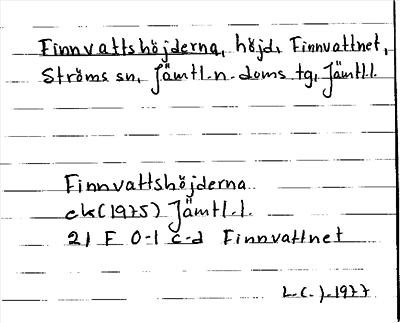 Finnvattshöjderna, höjd, Finnvattnet,
Ströms sn, Jämtl. n. doms tg, Jämtl.l.
Finnvattshöjderna
ek (1975) Jämtl.l.
21 F 0-1 c-d Finnvattnet
L.C.J. 1977